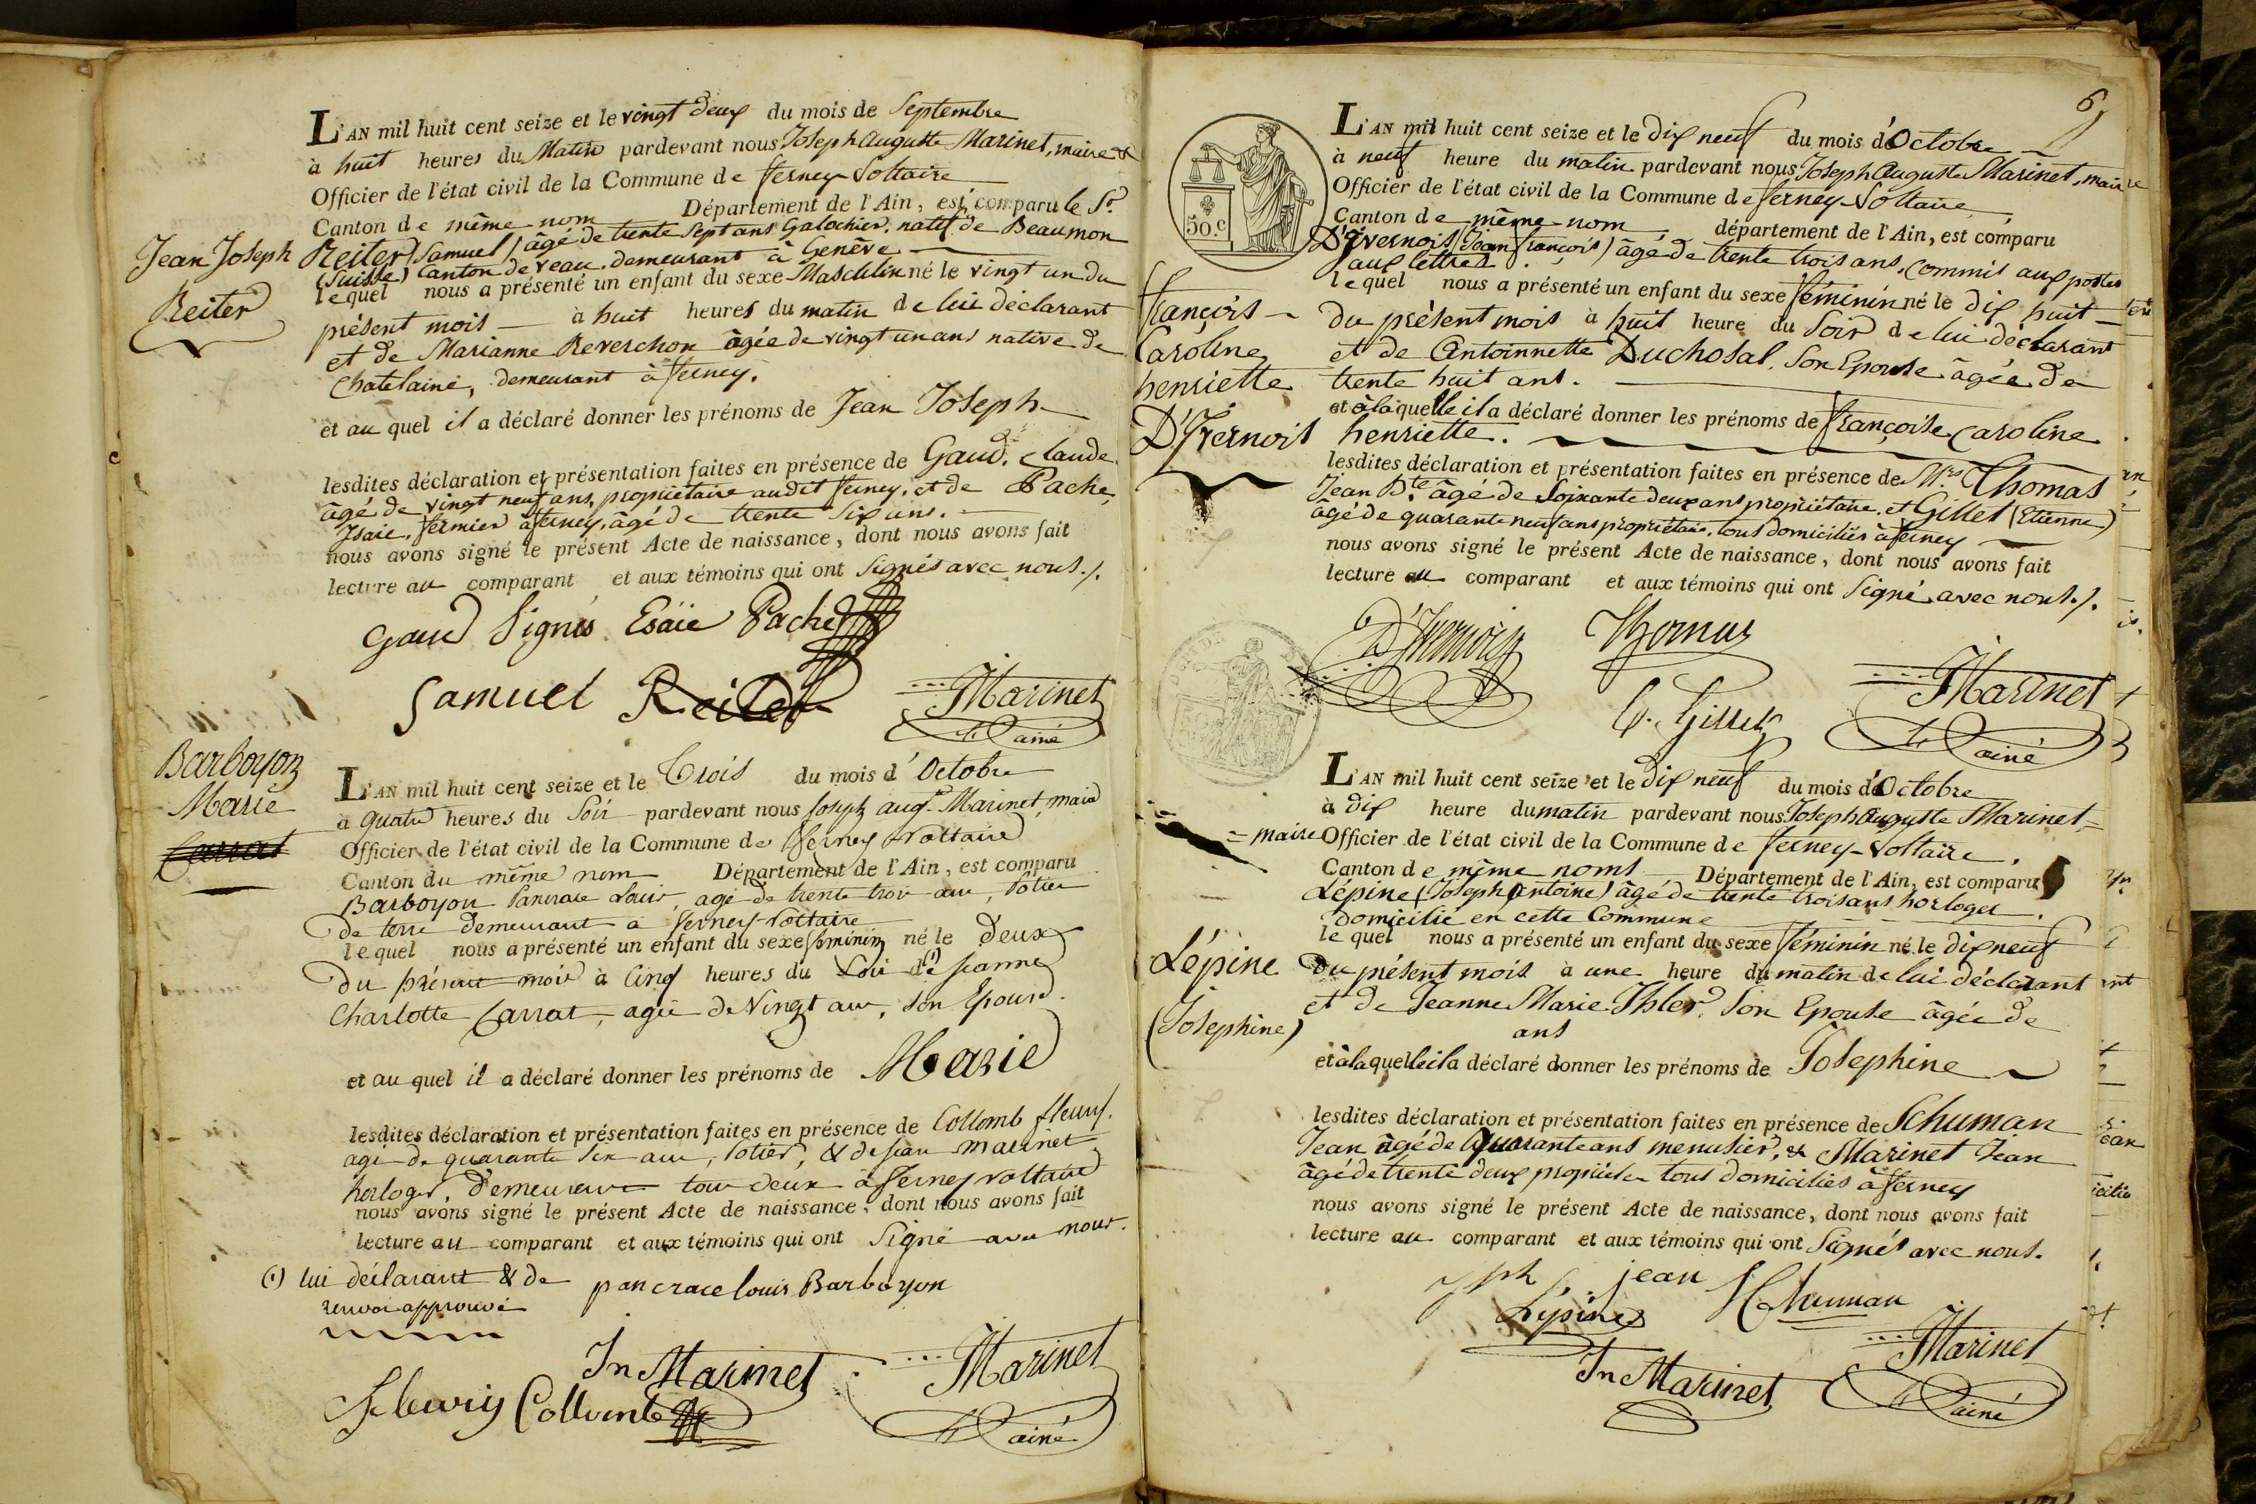 L'AN mil huit cent seize et le vingt deux du mois de Septembre
à huit heures du Matin pardevant nous Joseph Auguste Marinet, maire &
Officier de l'état civil de la Commune de ferney Voltaire
Canton de même nom Département de l'Ain, est comparu le Sr.
Jean Joseph
Reiter
Reiter (Samuel) âgé de trente sept ans Galochier, natif de Beaumon
(Suisse) Canton de veau, demeurant à Genêve
lequel nous a présenté un enfant du sexe Masculin né le vingt un du
présent mois à huit heures du matin de lui déclarant
et de Marianne Reverchon âgée de vingt un ans native de
Chatelaine, demeurant à ferney.
et au quel il a déclaré donner les prénoms de Jean Joseph
lesdites déclaration et présentation faites en présence de Gaud, Claude
âgé de vingt neuf ans, propriétaire audit ferney, et de Pache,
Isaïe, fermier à ferney, âgé de trente six ans.
nous avons signé le présent Acte de naissance, dont nous avons fait
lecture au comparant et aux témoins qui ont Signés avec nous./.
Gaud Signés Esaïe Pache
Samuel Reiter
Marinet
ainé
Barboyon
Marie
Carrat
L'AN mil huit cent seize et le Trois du mois d'Octobre
à quatre heures du Soir pardevant nous Joseph augte Marinet, maire
Officier de l'état civil de la Commune de ferney voltaire
Canton du même nom Département de l'Ain, est comparu
Barboyon Pancrace Louis, agé de trente trois ans, Potier
de terre demeurant a ferney-voltaire
lequel nous a présenté un enfant du sexe féminin né le deux
du présent mois à Cinq heures du Soir de (1) Jeanne
Charlotte Carrat, agée de Vingt ans, Son Epouse.
et au quel il a déclaré donner les prénoms de Marie
lesdites déclaration et présentation faites en présence de Collomb fleury.
agé de quarante six ans, Potier, & de Jean marinet
horloger, demeurant tous deux à ferney voltaire
nous avons signé le présent Acte de naissance, dont nous avons fait
lecture au comparant et aux témoins qui ont Signé avec nous.
(1) lui déclarant & de
renvoi approuvé
pancrace louis Barboyon
Jn Marinet
Marinet
ainé
fleuriy Collomb
6
50.c
L'AN mil huit cent seize et le dix neuf du mois d'Octobre
à neuf heure du matin pardevant nous Joseph Auguste Marinet, maire
Officier de l'état civil de la Commune de ferney-Voltaire,
Canton de même-nom département de l'Ain, est comparu
D'Ivernois (Jean François) âgé de trente trois ans, Commis aux postes
aux lettres.
lequel nous a présenté un enfant du sexe féminin né le dix huit
françois
Caroline
henriette
D'Ivernois
du présent mois à huit heure du Soir de lui déclarant
et de Antoinnette Duchosal, Son Epouse âgée de
trente huit ans.
et à la quelle il a déclaré donner les prénoms de françoise Caroline
henriette.
lesdites déclaration et présentation faites en présence de Mrs. Thomas
Jean Bte. âgé de Soixante deux ans propriétaire, et Gillet (Etienne)
âgé de quarante neuf ans propriétaire, tous domiciliés à ferney
nous avons signé le présent Acte de naissance, dont nous avons fait
lecture au comparant et aux témoins qui ont Signé avec nous./.
D'Ivernois Thomas
E. Gillet
Marinet
ainé
L'AN mil huit cent seize et le dix neuf du mois d'Octobre
à dix heure du matin pardevant nous Joseph Auguste Marinet =
= maire Officier de l'état civil de la Commune de ferney-Voltaire,
Canton de même noms Département de l'Ain, est comparu
Lépine (Joseph Antoine) âgé de trente trois ans horloger
domicilié en cette Commune
lequel nous a présenté un enfant du sexe féminin né le dix neuf
Lépine
(Josephine)
du présent mois à une heure du matin de lui déclarant
et de Jeanne Marie Ihler, Son Epouse âgée de
ans
et à laquelle il a déclaré donner les prénoms de Josephine
lesdites déclaration et présentation faites en présence de Schuman
Jean âgé de Quarante ans menusier, & Marinet Jean
âgé de trente deux propriétre tous domiciliés à ferney
nous avons signé le présent Acte de naissance, dont nous avons fait
lecture au comparant et aux témoins qui ont Signés avec nous.
Jph Lépine
jean Schuman
Jn Marinet
Marinet
ainé